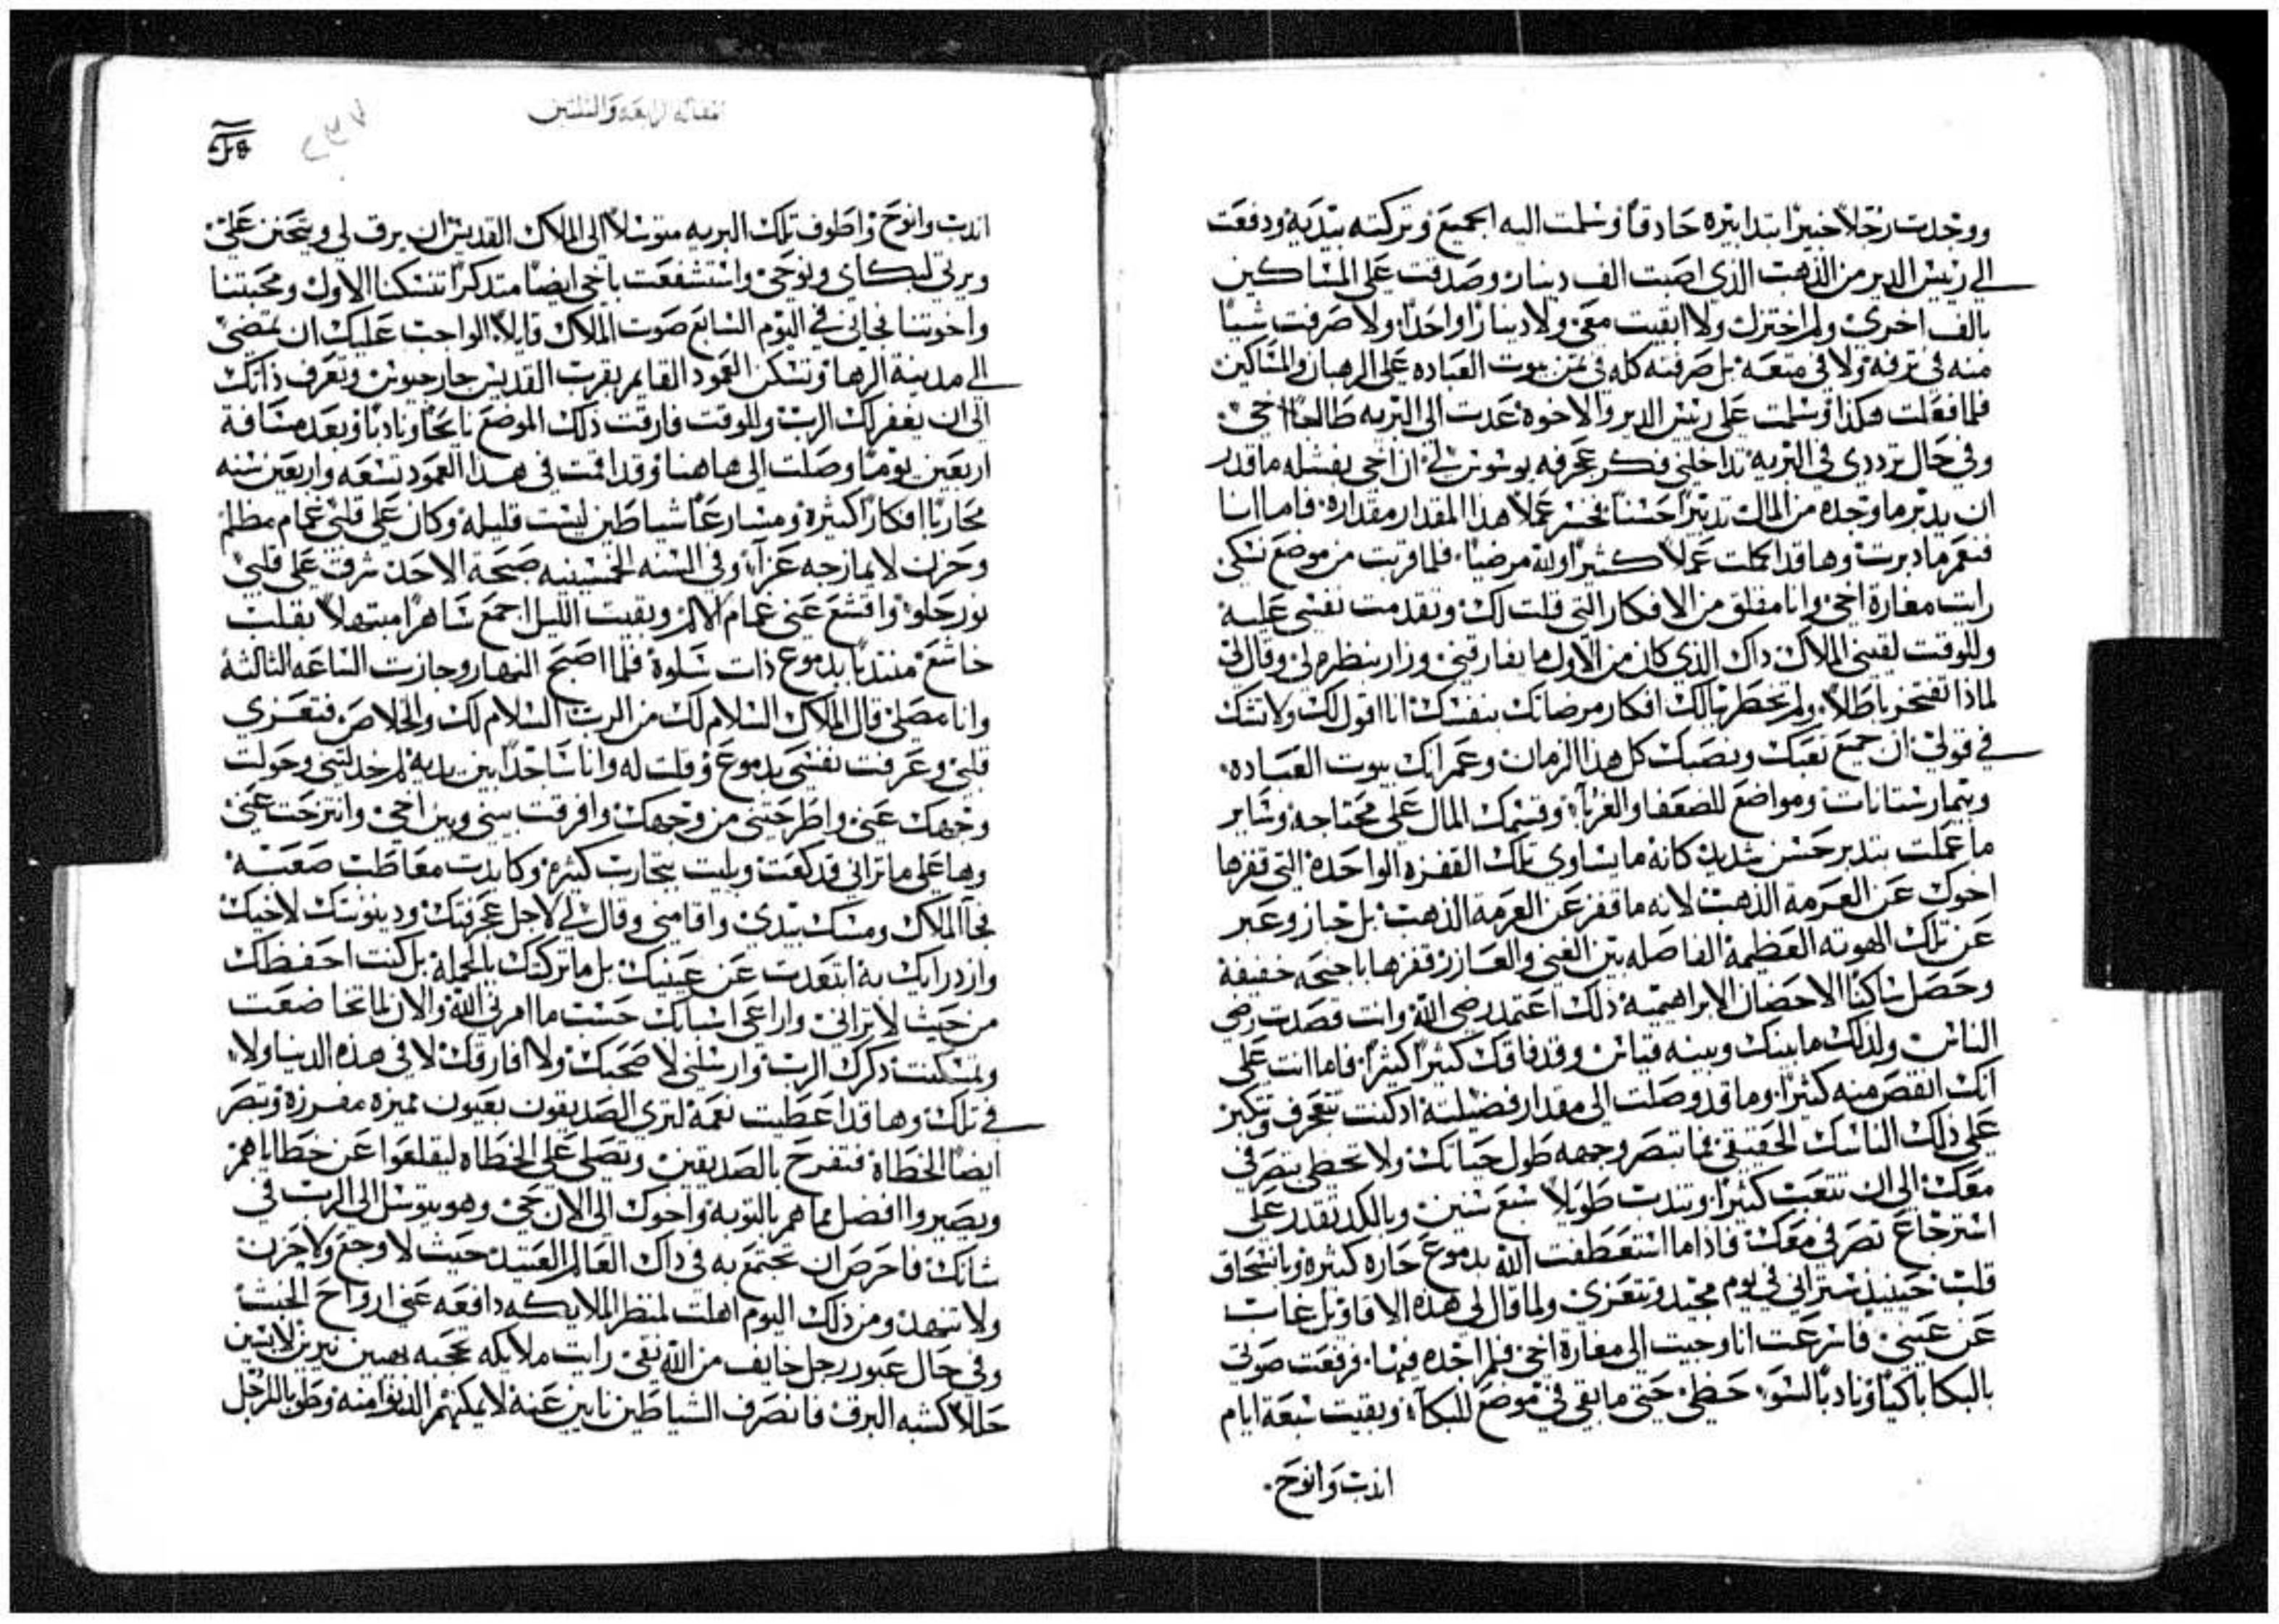 ووجدت رجلاً خبيرًا بتدابيره حادقًا وسلمت اليه الجميع وتركته بيديه ودفعت
الي رييس الدير من الذهب الذي اصبت الف دينار وصدقت علي المساكين
بالف اخري ولم اختزل ولا ابقيت معي ولا دينارًا واحدًا ولا صرفت شيًا
منه في ترفه ولا في متعه بل صرفته كله في ثمن بيوت العباده علي الرهبان والمساكين
فلما فعلت هكذا وسلمت علي رييس الدير والاخوه عدت الي البريه طالعًا اخي
وفي حال ترددي في البريه تداخلني فكر عجرفه يوسوس لي ان اخي بفشله ما قدر
ان يدبر ما وجده من المال تدبيرًا حسنًا فخسر عملاً هذا المقدار مقداره فاما انا
فنعم ما دبرت وها قد اكملت عملاً كثيرًا ولله مرضيًا فلما قربت من موضع نسكي
رايت مغارة اخي وانا مقلق من الافكار التي قلت لك وتقدمت نفسي عليه
وللوقت لقيني الملاك داك الذي كان من الاول ما يفارقني وزار بنظره لي وقال لي
لماذا تفتخر باطلاً ولم يخطر ببالك افكار مرضاتك بنفسك انا اقول لك ولا تشك
في قولي ان جميع تعبك ونصبك كل هذا الزمان وعمرانك بيوت العباده
وبيمارستانات ومواضع للضعفا والغربآ وقسمك المال علي محتاجه وساير
ما عملت بتدبر حسن شديد كانه ما يساوي تلك القفزه الواحده التي قفزها
اخوك عن العرمة الذهب لانه ما قفز عن العرمة الذهب بل جاز وعبر
عن تلك الهوته العظيمة الفاصله بين الغني والعازر قفزها باجنحه خفيفة
وحصل ساكنًا الاحضان الابراهيميه ذلك اعتمد رضي الله وانت قصدت رضي
الناس ولذلك ما بينك وبينه قياس وقد فاقك كثيرًا كثيرًا فاما انت علي
انك انقص منه كثيرًا وما قد وصلت الي مقدار فضيلته ادكنت تتعجرف وتتكبر
علي ذلك الناسك الحقيقي فما تبصر وجهه طول حياتك ولا تحظي بتصرفي
معك الي ان تتعب كثيرًا وتندب طويلاً سبع سنين وبالكد تقدر علي
استرجاع تصرفي معك فاذا ما استعطفت الله بدموع حاره كثيره وبانسحاق
قلب حينيذ ستراني في يوم مجيد وتتعزي ولما قال لي هذه الاقاويل غاب
عن عيني فاسرعت انا وجيت الي مغارة اخي فلم اجده فيها فرفعت صوتي
بالبكا باكيًا ونادبًا لسو حظي حتي ما بقي في موضع للبكآ وبقيت سبعة ايام
اندب وانوح
مقاله الرابعة والثلثين
٢٣٧
اندب وانوح واطوف تلك البريه متوسلاً الي الملاك القديس ان يرق لي ويتحنن علي
ويرتي لبكاي ونوحي واستشفعت باخي ايضًا متذكرًا تنسكنا الاول ومحبتنا
واخوتنا فجاني في اليوم السابع صوت الملاك قايلاً الواجب عليك ان تمضي
الي مدينة الرها وتسكن العمود القايم بقرب القديس جارجيوس وتعرف ذاتك
الي ان يغفر لك الرب وللوقت فارقت ذلك الموضع نايحًا ونادبًا وبعد مسافة
اربعين يومًا وصلت الي هاهنا وقد اقمت في هذا العمود تسعه واربعين سنه
محاربًا افكارًا كثيرة ومسارعًا شياطين ليست قليله وكان علي قلبي غمام مظلم
وحزن لا يمازجه عزآ وفي السنه الخمسينيه صبحة الاحد شرق علي قلبي
نور حلو واقشع عني غمام الالم وبقيت الليل اجمع ساهرًا مبتهلاً بقلب
خاشع منتديًا بدموع ذات سلوة فلما اصبح النهار وجازت الساعه الثالثة
وانا مصلي قال الملاك السلام لك من الرب السلام لك والخلاص فتعزي
قلبي وعرفت نفسي بدموع وقلت له وانا ساجدًا بين يديه لم خدلتني وحولت
وجهك عني واطرحتني من وجهك وافرقت بيني وبين اخي وانتزحت عني
وها علي ما تراني قد كعت وبليت بتجارب كثيره وكابدت معاطب صعبه
فجآ الملاك ومسك بيدي واقامني وقال لي لاجل عجرفتك ودينونتك لاخيك
وازدرايك به ابتعدت عن عينيك بل ما تركتك بالجملة بل كنت احفظك
من حيث لا تراني واراعي اسبابك حسب ما امرني الله والان لما تخاضعت
وتمسكنت ذكرك الرب وارسلني لاصحبك ولا افارقك لا في هذه الدنيا ولا
في تلك وها قد اعطيت نعمة لتري الصديقون بعيون مميزه مفرزة وتبصر
ايضًا الخطاة فتفرح بالصديقين وتصلي علي الخطاه ليقلعوا عن خطاياهم
ويصيروا افضل مما هم بالتوبه واخوك الي الان حي وهو يتوسل الي الرب في
شانك فاحرص ان تجتمع به في داك العالم العتيد حيث لا وجع ولا حزن
ولا تنهد ومن ذلك اليوم اهلت لمنظر الملايكه دافعه عني ارواح الخبث
وفي حال عبور رجل خايف من الله نقي رايت ملايكه نيرين لابسين
حللاً كشبه البرق فانصرف الشياطين نابين عنه لا يمكنهم الدنوا منه وطوبا للرجل